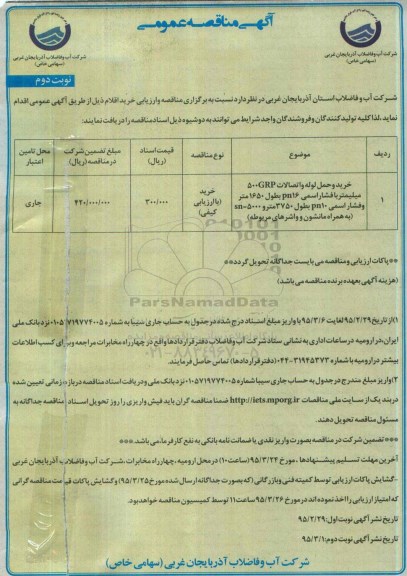 آگهی مناقصه عمومی
شرکت آب و فاضلاب آذربایجان غربی
(سهامی خاص)
شرکت آب و فاضلاب آذربایجان غربی
(سهامی خاص)
نوبت دوم
شرکت آب و فاضلاب استان آذربایجان غربی در نظر دارد نسبت به برگزاری مناقصه و ارزیابی خرید اقلام ذیل از طریق آگهی عمومی اقدام
نماید، لذا کلیه تولیدکنندگان و فروشندگان واجد شرایط می توانند به دو شیوه ذیل اسناد مناقصه را دریافت نمایند:
ردیف | موضوع | نوع مناقصه | قیمت اسناد (ریال) | مبلغ تضمین شرکت در مناقصه (ریال) | محل تامین اعتبار
۱ | خرید و حمل لوله و اتصالات ۵۰۰GRP میلیمتر با فشار اسمی pn۱۶ بطول ۱۶۵۰ متر و فشار اسمی pn۱۰ بطول ۳۷۵۰ متر و sn=۵۰۰۰ (به همراه مانشون و واشرهای مربوطه) | خرید (با ارزیابی کیفی) | ۳۰۰/۰۰۰ | ۴۲۰/۰۰۰/۰۰۰ | جاری
**پاکات ارزیابی و مناقصه می بایست جداگانه تحویل گردد**
(هزینه آگهی بعهده برنده مناقصه می باشد)
ParsNamadData
۱) از تاریخ ۹۵/۲/۲۹ لغایت ۹۵/۳/۶ با واریز مبلغ اسناد درج شده در جدول به حساب جاری سیبا به شماره ۰۱۰۵۷۱۹۷۷۴۰۰۵ نزد بانک ملی
ایران، در ارومیه در ساعات اداری به نشانی ستاد شرکت آب و فاضلاب دفتر قراردادها واقع در چهارراه مخابرات مراجعه و برای کسب اطلاعات
بیشتر در ارومیه با شماره ۳۱۹۴۵۳۷۳-۰۴۴ (دفتر قراردادها) تماس حاصل فرمایند.
۲) واریز مبلغ مندرج در جدول به حساب جاری سیبا شماره ۰۱۰۵۷۱۹۷۷۴۰۰۵ نزد بانک ملی و دریافت اسناد مناقصه در بازه زمانی تعیین شده
در بند یک از سایت ملی مناقصات http://iets.mporg.ir ضمنا مناقصه گران باید فیش واریزی را روز تحویل اسناد مناقصه جداگانه به
مسئول مناقصه تحویل دهند.
**تضمین شرکت در مناقصه بصورت واریز نقدی یا ضمانت نامه بانکی به نفع کارفرما، می باشد.**
آخرین مهلت تسلیم پیشنهادها، مورخ ۹۵/۳/۲۴ (ساعت ۱۰) در محل ارومیه، چهارراه مخابرات، شرکت آب و فاضلاب آذربایجان غربی
-گشایش پاکات ارزیابی توسط کمیته فنی و بازرگانی (که بصورت جداگانه ارسال شده مورخ ۹۵/۳/۲۵) و گشایش پاکات قیمت مناقصه گرانی
که امتیاز ارزیابی را اخذ نموده اند در مورخ ۹۵/۳/۲۶ ساعت ۱۱ توسط کمیسیون مناقصه خواهد بود.
تاریخ نشر آگهی نوبت اول: ۹۵/۲/۲۹
تاریخ نشر آگهی نوبت دوم: ۹۵/۳/۱
شرکت آب و فاضلاب آذربایجان غربی (سهامی خاص)